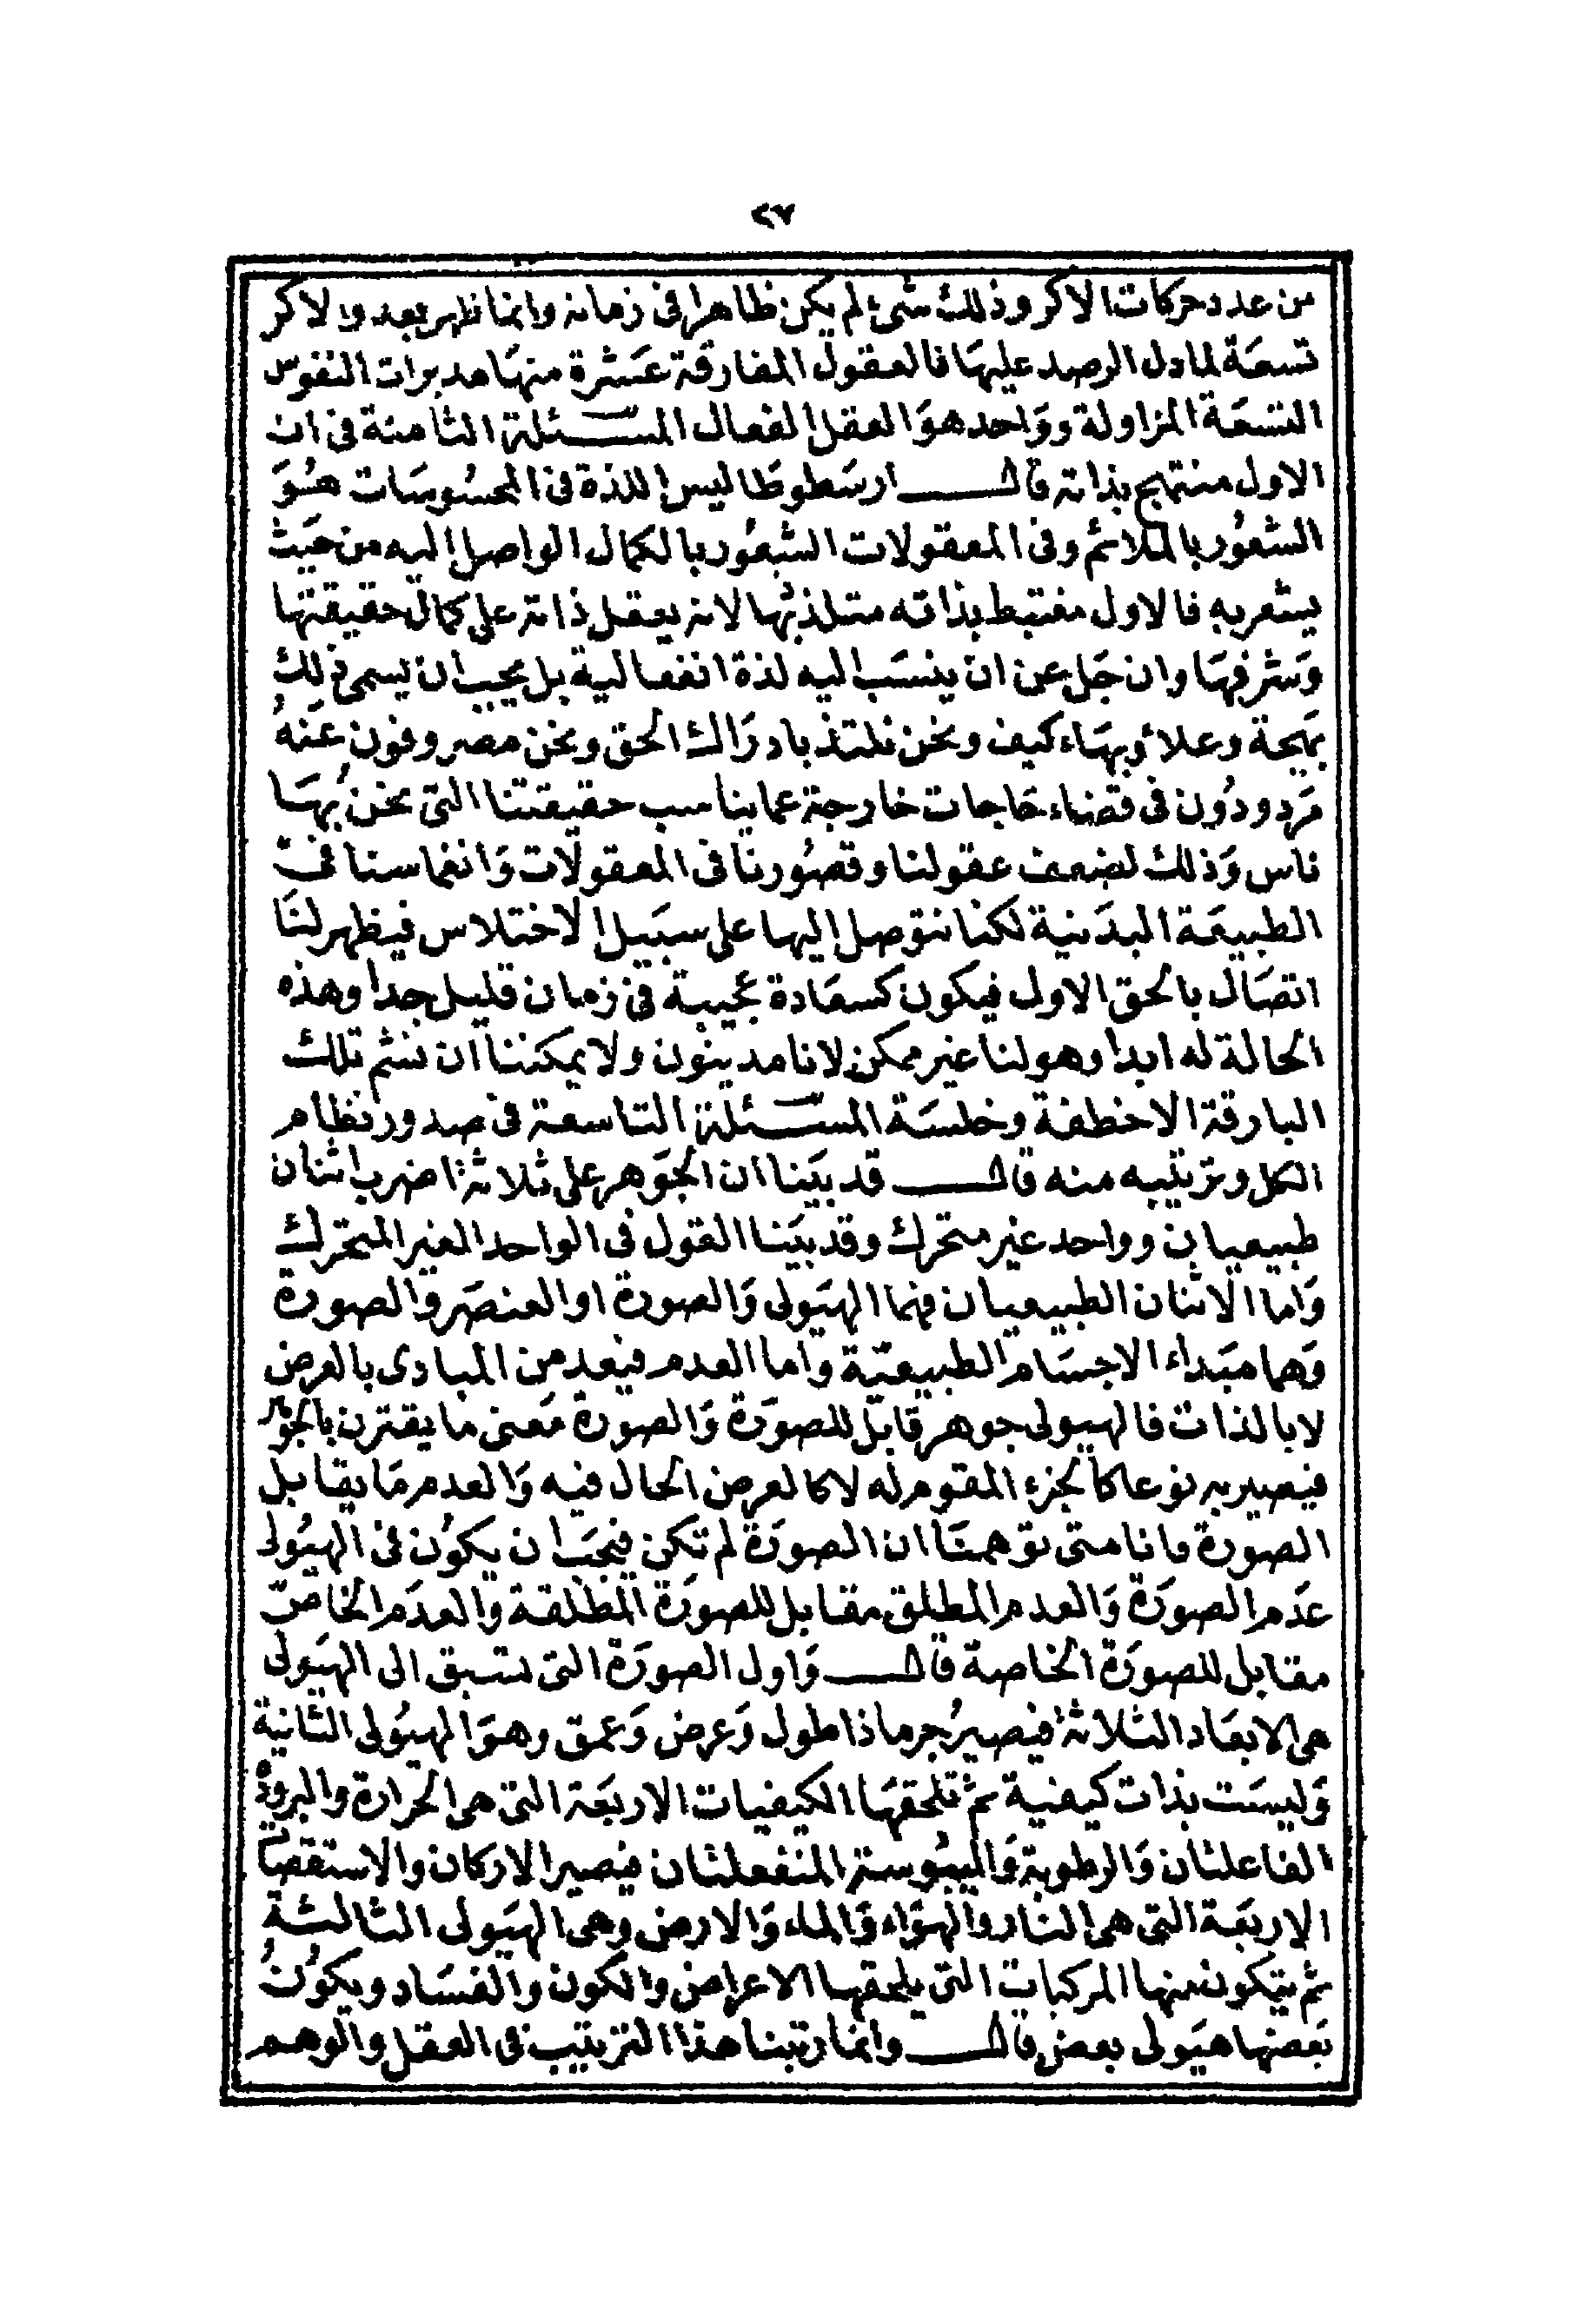 ٢٧
من عدد حركات الاكر وذلك شئ لم يكن ظاهرا فى زمانه وانما ظهر بعد والاكر
تسعة لما دل الرصد عليها فالعقول المفارقة عشرة منها مدبرات النفوس
التسعة المزاولة وواحد هو العقل الفعال المسئلة الثامنة فى ان
الاول مبتهج بذاته قال ارسطوطاليس اللذة فى المحسوسات هو
الشعور بالملائم وفى المعقولات الشعور بالكمال الواصل اليه من حيث
يشعر به فالاول مغتبط بذاته متلذ بها لانه يعقل ذاته على كمال حقيقتها
وشرفها وان جل عن ان ينسب اليه لذة انفعالية بل يجب ان يسمى ذلك
بهجة وعلاء وبهاء كيف ونحن نلتذ بادراك الحق ونحن مصروفون عنه
مردودون فى قضاء حاجات خارجة عما يناسب حقيقتنا التى نحن بها
ناس وذلك لضعف عقولنا وقصورنا فى المعقولات وانغماسنا فى
الطبيعة البدنية لكنا نتوصل اليها على سبيل الاختلاس فيظهر لنا
اتصال بالحق الاول فيكون كسعادة عجيبة فى زمان قليل جدا وهذه
الحالة له ابدا وهو لنا غير ممكن لانا مدينون ولا يمكننا ان نشم تلك
البارقة الا خطفة وخلسة المسئلة التاسعة فى صدور نظام
الكل وترتيبه منه قال قد بينا ان الجوهر على ثلاثة اضرب اثنان
طبيعيان وواحد غير متحرك وقد بينا القول فى الواحد الغير المتحرك
واما الاثنان الطبيعيان فهما الهيولى والصورة او العنصر والصورة
وهما مبداء الاجسام الطبيعية واما العدم فيعد من المبادى بالعرض
لا بالذات فالهيولى جوهر قابل للصورة والصورة معنى ما يقترن بالجوهر
فيصير به نوعا كالجزء المقوم له لا كالعرض الحال فيه والعدم ما يقابل
الصورة فانا متى توهمنا ان الصورة لم تكن فيجب ان يكون فى الهيولى
عدم الصورة والعدم المطلق مقابل للصورة المطلقة والعدم الخاص
مقابل للصورة الخاصة قال واول الصورة التى تسبق الى الهيولى
هى الابعاد الثلاثة فيصير جرما ذا طول وعرض وعمق وهو الهيولى الثانية
وليست بذات كيفية ثم تلحقها الكيفيات الاربعة التى هى الحرارة والبرودة
الفاعلتان والرطوبة واليبوسة المنفعلتان فيصير الاركان والاستقصات
الاربعة التى هى النار والهواء والماء والارض وهى الهيولى الثالثة
ثم يتكون منها المركبات التى يلحقها الاعراض والكون والفساد ويكون
بعضها هيولى بعض قال وانما رتبنا هذا الترتيب فى العقل والوهم